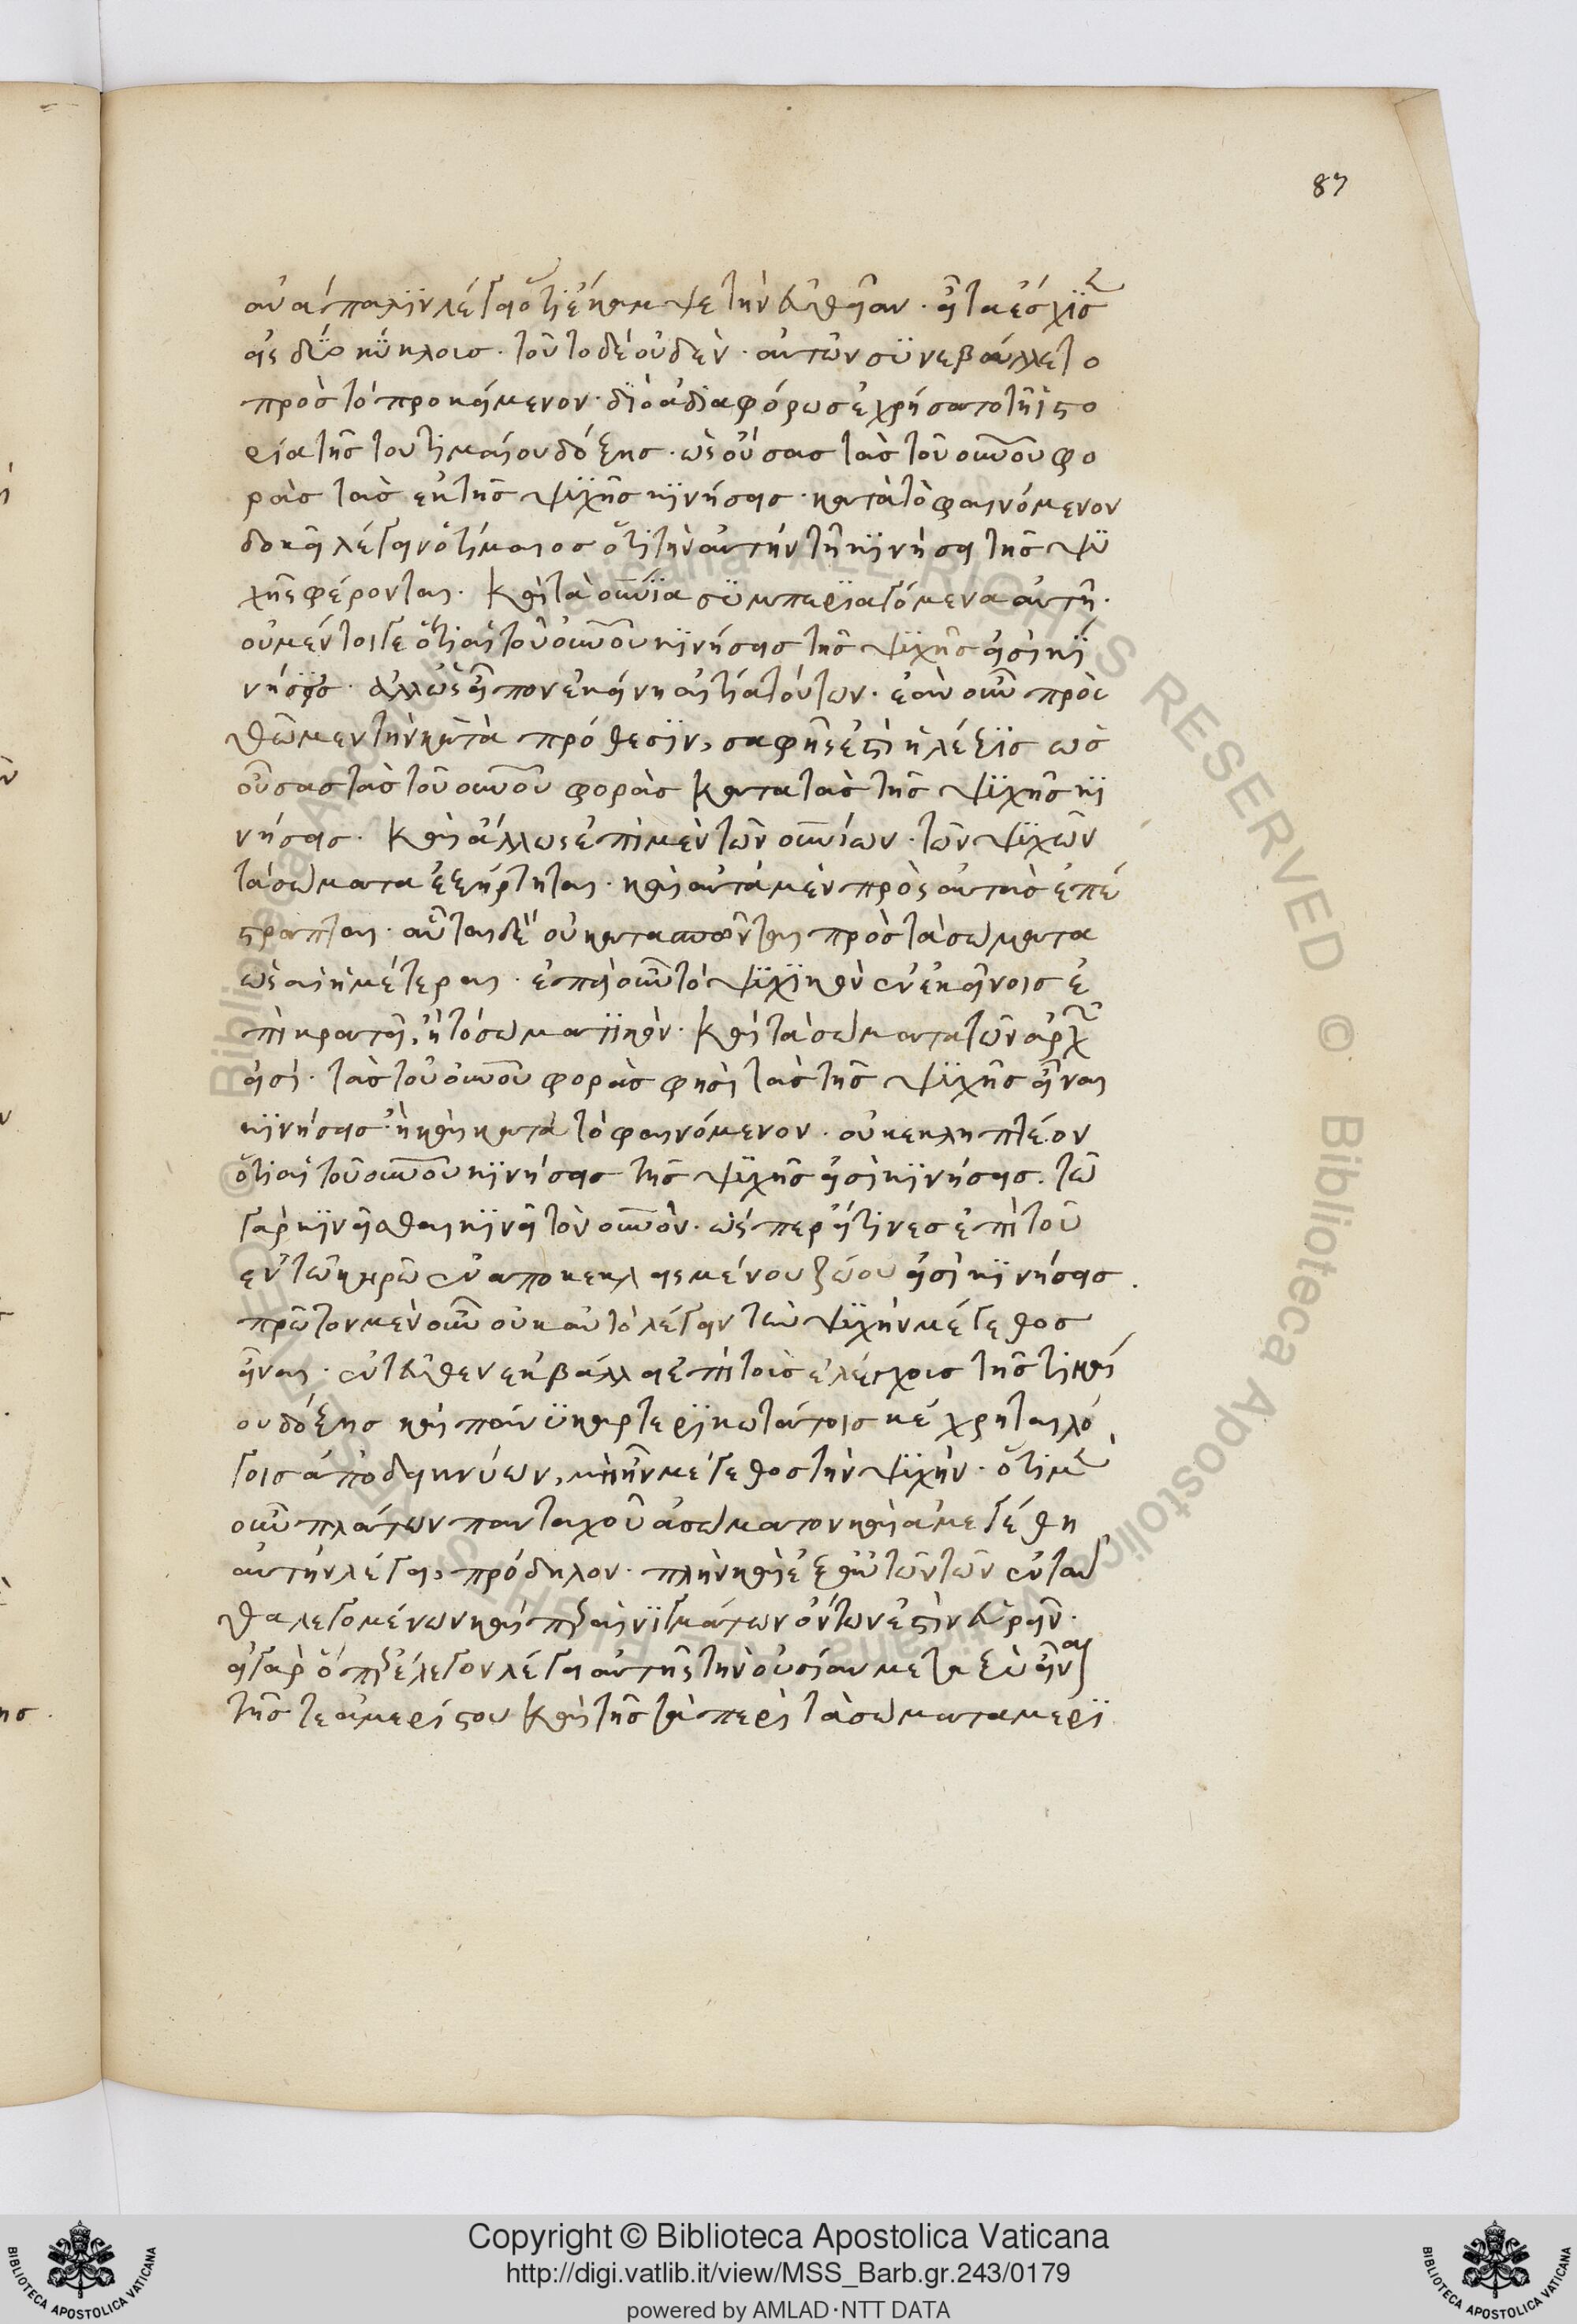 87
ἀνάπαλιν λέγει ὅτι ἔκαμψε τὴν εὐθεῖαν· εἶτα ἔσχισ
εἰς δύο κύκλοις· τοῦτο δὲ οὐδὲν αὐτῶν συνεβάλλετο
πρὸς τὸ προκείμενον· διὸ ἀδιαφόρως ἐχρήσατο τῇ ἱστο
ρία τῆς τοῦ τιμαίου δόξης· ὡς οὔσας τὰς τοῦ οὐνοῦ φο
ρὰς τὰς ἐκ τῆς ψυχῆς κινήσεις· κατὰ τὸ φαινόμενον
δοκεῖ λέγειν ὁ τίμαιος ὅτι τὴν αὐτὴν τῇ κινήσει τῆς ψυ
χῆς φέρονται· καὶ τὰ οὐνια συμπεριαγόμενα αὐτῇ·
οὐ μέντοιγε ὅτι αἱ τοῦ οὐνοῦ κινήσεις τῆς ψυχῆς εἰσὶ κι
νήσεις· ἀλλ' ὡς εἶπον ἐκείνη αἰτία τούτων· ἐὰν οὖν προσ
θῶμεν τὴν κατὰ πρόθεσιν, σαφής ἐστι ἡ λέξις ὡς
οὔσας τὰς τοῦ οὐνοῦ φορὰς κατὰ τὰς τῆς ψυχῆς κι
νήσεις· καὶ ἄλλως ἐπὶ μὲν τῶν οὐνίων· τῶν ψυχῶν
τὰ σώματα ἐξήρτηται· καὶ αὐτὰ μὲν πρὸς αὐτὰς ἐπέ
στραπται· αὗται δὲ οὐ κατασπῶνται πρὸς τὰ σώματα
ὡς αἱ ἡμέτεραι· ἐπεὶ οὖν τὸ ψυχικὸν ἐν ἐκείνοις ἐ
πικρατεῖ, ἢ τὸ σωματικὸν· καὶ τὰ σώματα τῶν ἀρχ
εἰσί· τὰς τοῦ οὐνοῦ φορὰς φησὶ τὰς τῆς ψυχῆς εἶναι
κινήσεις· ἢ καὶ κατὰ τὸ φαινόμενον· οὐκ ἐκληπτέον
ὅτι αἱ τοῦ οὐνοῦ κινήσεις τῆς ψυχῆς εἰσὶ κινήσεις· τῶ
γὰρ κινεῖσθαι κινεῖ τὸν οὐνὸν· ὥσπερ εἴ τινες ἐπὶ τοῦ
ἐν τῶ καρῶ ἐναποκεκλεισμένου ζώου εἰσὶ κινήσεις.
πρῶτον μὲν οὖν οὐκ αὐτὸ λέγειν τὴν ψυχὴν μέγεθος
εἶναι· ἐντεῦθεν ἐκβάλλει ἐπὶ τοῖς ἐλέγχοις τῆς τιμαί
ου δόξης καὶ πάνυ καρτερικωτάτοις κέχρηται λό
γοις ἀποδεικνύων, μὴ εἶν μέγεθος τὴν ψυχὴν· ὅτι μὲν
οὖν πλάτων πανταχοῦ ἀσώματον καὶ ἀμεγέθη
αὐτὴν λέγει, πρόδηλον· πλὴν καὶ ἐξ αὐτῶν τῶν ἐνταῦ
θα λεγομένων καὶ παρ' αἰνιγμάτων ὄντων ἐστὶν εὑρεῖν·
εἰ γὰρ ὅπερ ἔλεγον λέγει αὐτῆς τὴν οὐσίαν μεταξὺ εἶναι
τῆς τε ἀμερίστου καὶ τῆς τὰ περὶ τὰ σώματα μερι